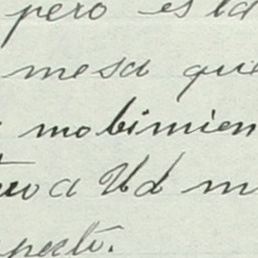 pero esta
mesa que
mobimien
tuo a Ud m
pecto.